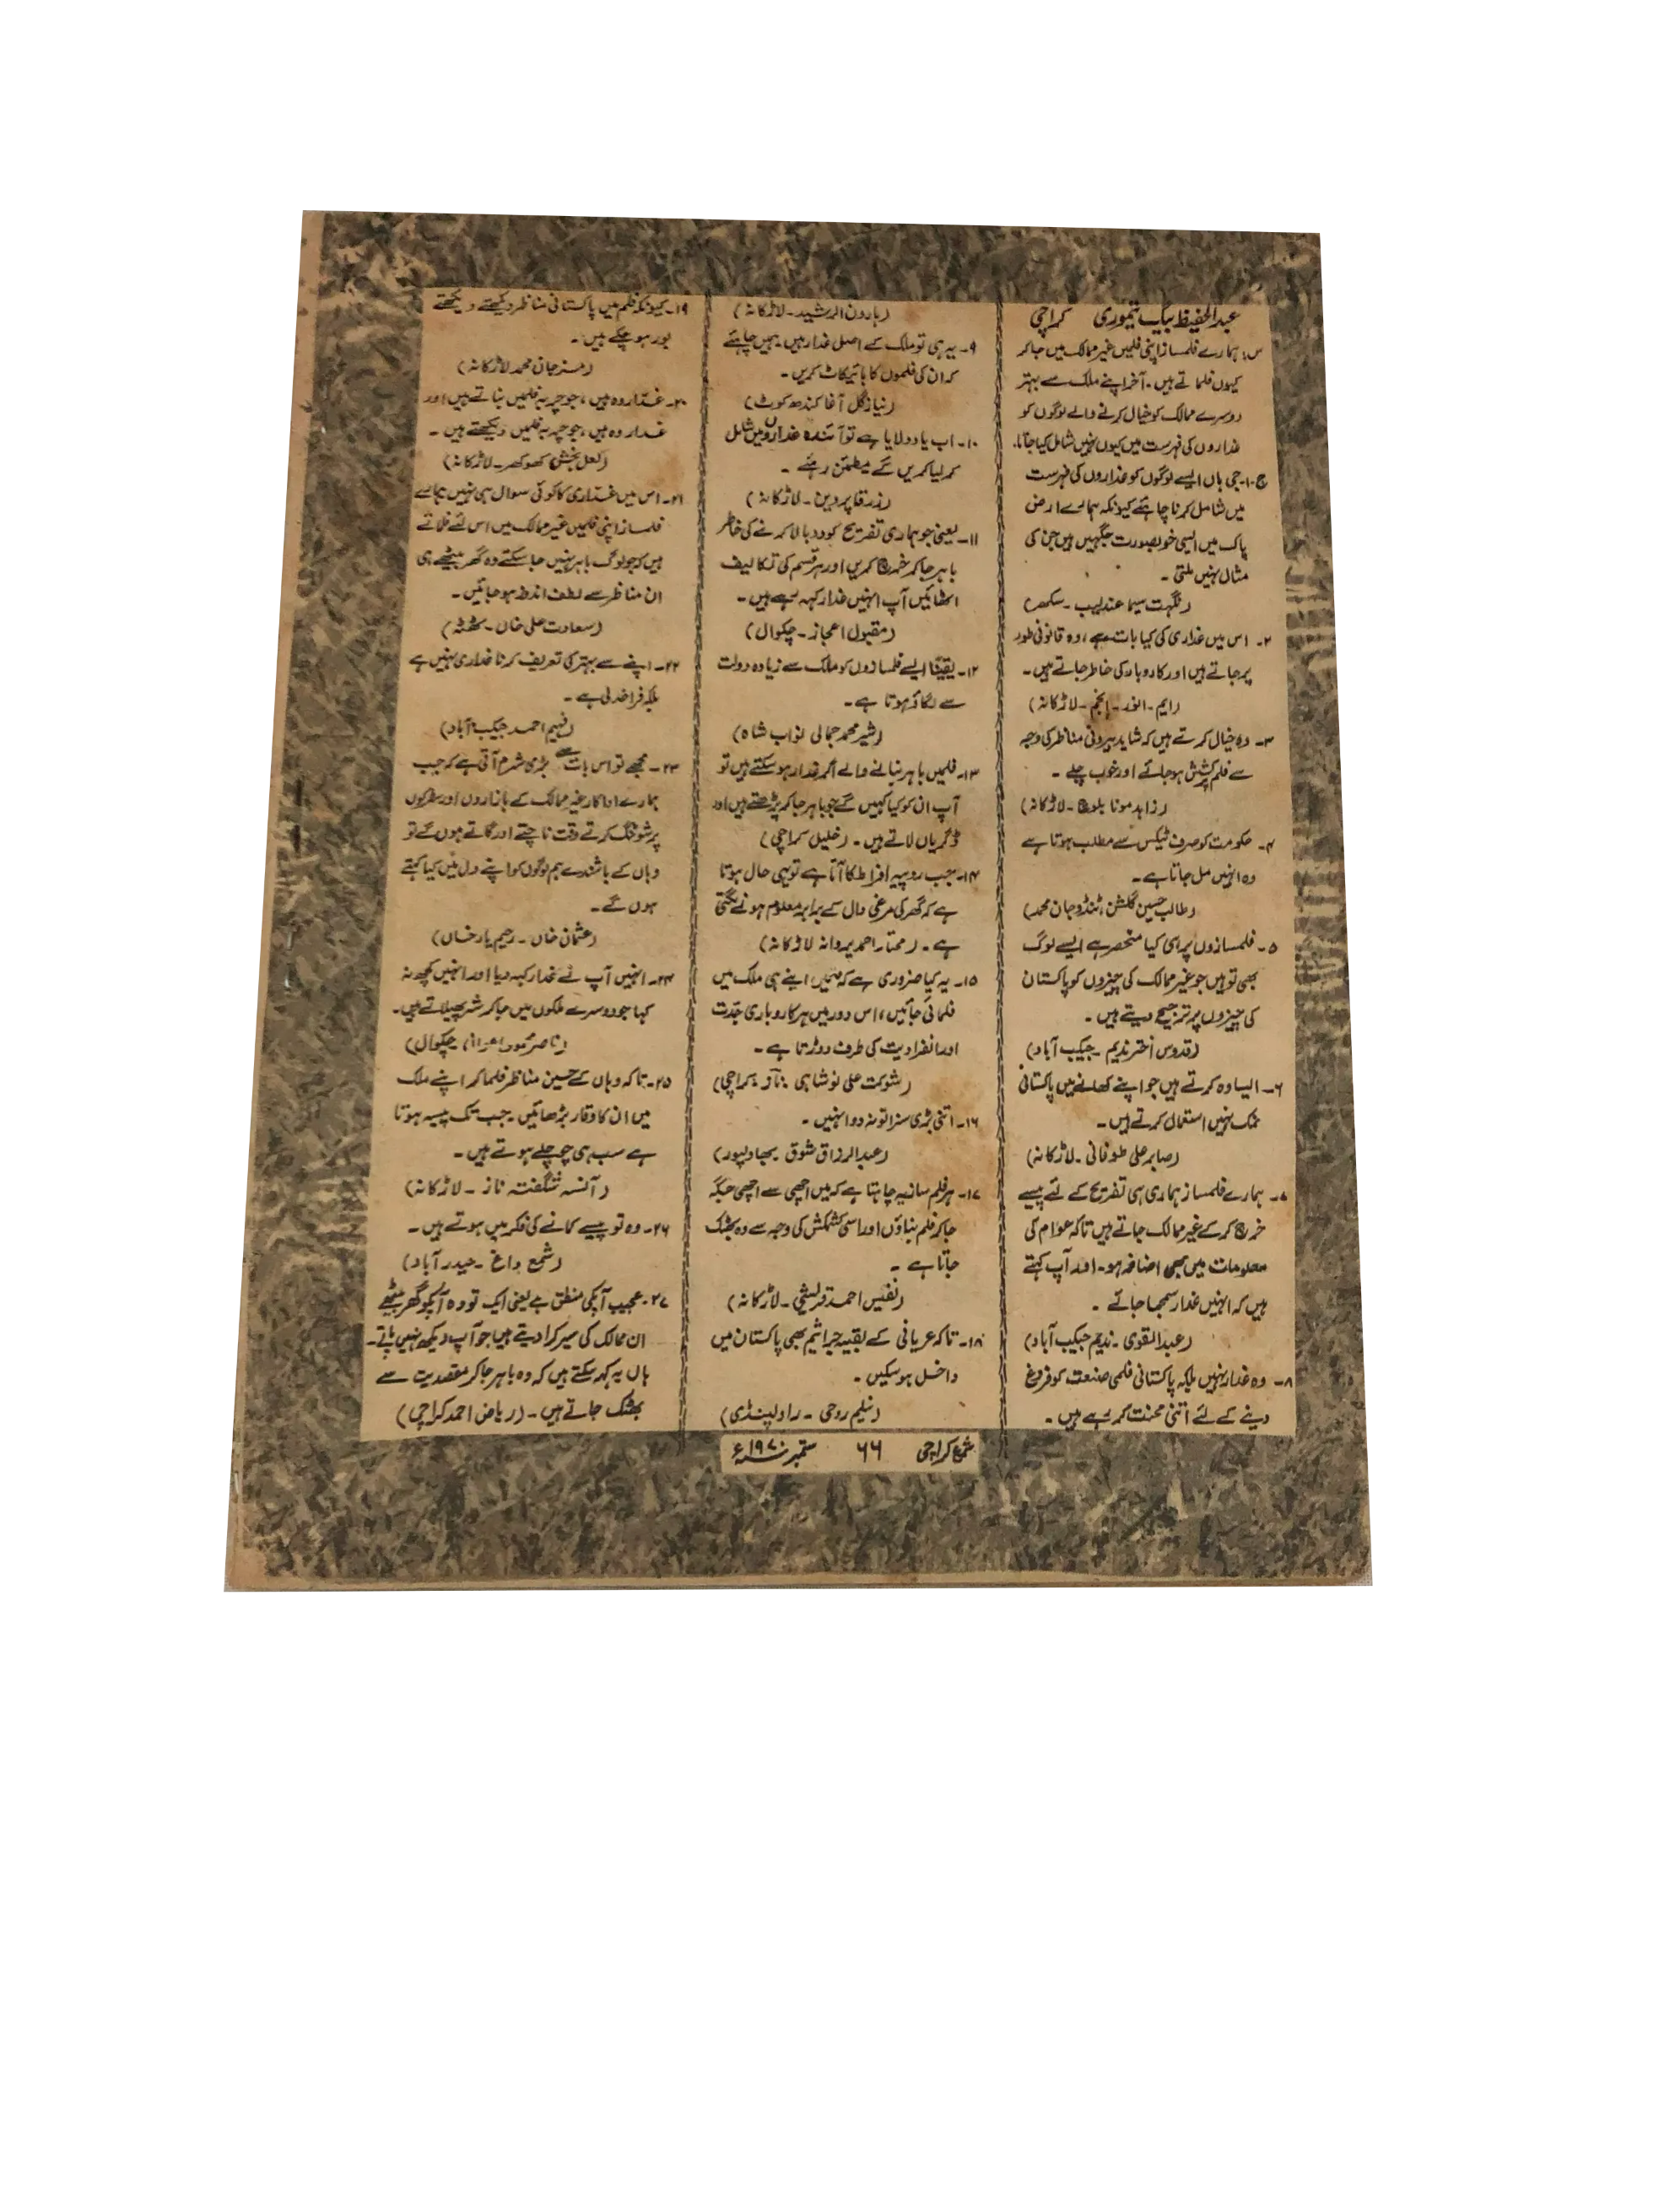 عبدالحفیظ بیگ تیموری کراچی
س: ہمارے فلمساز اپنی فلمیں غیر ممالک میں جا کر
کیوں فلماتے ہیں۔ آخر اپنے ملک سے بہتر
دوسرے ممالک کو خیال کرنے والے لوگوں کو
غداروں کی فہرست میں کیوں نہیں شامل کیا جاتا۔
ج۔۱۔ جی ہاں ایسے لوگوں کو غداروں کی فہرست
میں شامل کرنا چاہئے کیونکہ ہمارے ارض
پاک میں ایسی خوبصورت جگہیں ہیں جن کی
مثال نہیں ملتی۔
(نگہت سیما عندلیب۔ سکھر)
۲۔ اس میں غداری کی کیا بات ہے، وہ قانونی طور
پر جاتے ہیں اور کاروبار کی خاطر جاتے ہیں۔
(ایم۔ انور۔ انجم۔ لاڑکانہ)
۳۔ وہ خیال کرتے ہیں کہ شاید بیرونی مناظر کی وجہ
سے فلم پرکشش ہو جائے اور خوب چلے۔
(زاہد مونا بلوچ۔ لاڑکانہ)
۴۔ حکومت کو صرف ٹیکس سے مطلب ہوتا ہے
وہ انہیں مل جاتا ہے۔
(طالب حسین گلشن، ٹنڈو جان محمد)
۵۔ فلمسازوں پر ہی کیا منحصر ہے ایسے لوگ
بھی تو ہیں جو غیر ممالک کی چیزوں کو پاکستان
کی چیزوں پر ترجیح دیتے ہیں۔
(قدوس اختر ندیم۔ جیکب آباد)
۶۔ ایسا وہ کرتے ہیں جو اپنے کھانے میں پاکستانی
نمک نہیں استعمال کرتے ہیں۔
(صابر علی طوفانی۔ لاڑکانہ)
۷۔ ہمارے فلمساز ہماری ہی تفریح کے لئے پیسے
خرچ کر کے غیر ممالک جاتے ہیں تاکہ عوام کی
معلومات میں بھی اضافہ ہو۔ اور آپ کہتے
ہیں کہ انہیں غدار سمجھا جائے۔
(عبدالقوی۔ ندیم جیکب آباد)
۸۔ وہ غدار نہیں بلکہ پاکستانی فلمی صنعت کو فروغ
دینے کے لئے اتنی محنت کر رہے ہیں۔
(ہارون الرشید۔ لاڑکانہ)
۹۔ یہ ہی تو ملک کے اصل غدار ہیں۔ ہمیں چاہئے
کہ ان کی فلموں کا بائیکاٹ کریں۔
(نیاز گل آغا کندھ کوٹ)
۱۰۔ اب یاد دلایا ہے تو آئندہ غداروں میں شامل
کر لیا کریں گے مطمئن رہئے۔
(زرقا پروین۔ لاڑکانہ)
۱۱۔ یعنی جو ہماری تفریح کو دوبالا کرنے کی خاطر
باہر جا کر خرچ کریں اور ہر قسم کی تکالیف
اٹھائیں آپ انہیں غدار کہہ رہے ہیں۔
(مقبول اعجاز۔ چکوال)
۱۲۔ یقیناً ایسے فلمسازوں کو ملک سے زیادہ دولت
سے لگاؤ ہوتا ہے۔
(شیر محمد جمالی نواب شاہ)
۱۳۔ فلمیں باہر بنانے والے اگر غدار ہو سکتے ہیں تو
آپ ان کو کیا کہیں گے جو باہر جا کر پڑھتے ہیں اور
ڈگریاں لاتے ہیں۔ (خلیل کراچی)
۱۴۔ جب روپیہ افراط کا آتا ہے تو یہی حال ہوتا
ہے کہ گھر کی مرغی دال کے برابر معلوم ہونے لگتی
ہے۔ (مختار احمد پروانہ لاڑکانہ)
۱۵۔ یہ کیا ضروری ہے کہ فلمیں اپنے ہی ملک میں
فلمائی جائیں، اس دور میں ہر کاروباری جدت
اور انفرادیت کی طرف دوڑتا ہے۔
(شوکت علی نوشاہی ناز۔ کراچی)
۱۶۔ اتنی بڑی سزا تو نہ دو انہیں۔
(عبدالرزاق شوق بہاولپور)
۱۷۔ ہر فلمساز یہ چاہتا ہے کہ میں اچھی سے اچھی جگہ
جا کر فلم بناؤں اور اسی کشمکش کی وجہ سے وہ بھٹک
جاتا ہے۔
(نفیس احمد قریشی۔ لاڑکانہ)
۱۸۔ تاکہ عریانی کے بقیہ جراثیم بھی پاکستان میں
داخل ہو سکیں۔
(نیلم روحی۔ راولپنڈی)
۱۹۔ کیونکہ فلم میں پاکستانی مناظر دیکھتے دیکھتے
بور ہو چکے ہیں۔
(مسز جان محمد لاڑکانہ)
۲۰۔ غدار وہ ہیں، جو چربہ فلمیں بناتے ہیں اور
غدار وہ ہیں، جو چربہ فلمیں دیکھتے ہیں۔
(لعل بخش کھوکھر۔ لاڑکانہ)
۲۱۔ اس میں غداری کا کوئی سوال ہی نہیں ہمارے
فلمساز اپنی فلمیں غیر ممالک میں اس لئے فلماتے
ہیں کہ جو لوگ باہر نہیں جا سکتے وہ گھر بیٹھے ہی
ان مناظر سے لطف اندوز ہو جائیں۔
(سعادت علی خاں۔ ٹھٹہ)
۲۲۔ اپنے سے بہتر کی تعریف کرنا غداری نہیں ہے
بلکہ فراخدلی ہے۔
(فہیم احمد جیکب آباد)
۲۳۔ مجھے تو اس بات سے بڑی شرم آتی ہے کہ جب
ہمارے اداکار غیر ممالک کے بازاروں اور سڑکوں
پر شوٹنگ کرتے وقت ناچتے اور گاتے ہوں گے تو
وہاں کے باشندے ہم لوگوں کو اپنے دل میں کیا کہتے
ہوں گے۔
(عثمان خاں۔ رحیم یار خاں)
۲۴۔ انہیں آپ نے غدار کہہ دیا اور انہیں کچھ نہ
کہا جو دوسرے ملکوں میں جا کر شر پھیلاتے ہیں۔
(ناصر محمود چکوال)
۲۵۔ تاکہ وہاں کے حسین مناظر فلما کر اپنے ملک
میں ان کا وقار بڑھائیں۔ جب تک پیسہ ہوتا
ہے سب ہی چوچلے ہوتے ہیں۔
(آنسہ شگفتہ ناز۔ لاڑکانہ)
۲۶۔ وہ تو پیسے کمانے کی فکر میں ہوتے ہیں۔
(شمع داغ۔ حیدرآباد)
۲۷۔ عجیب آپکی منطق ہے یعنی ایک تو وہ آپکو گھر بیٹھے
ان ممالک کی سیر کرا دیتے ہیں جو آپ دیکھ نہیں پاتے۔
ہاں یہ کہہ سکتے ہیں کہ وہ باہر جا کر مقصدیت سے
بھٹک جاتے ہیں۔ (ریاض احمد کراچی)
شمع کراچی ۶۶ ستمبر ۱۹۷۰ء